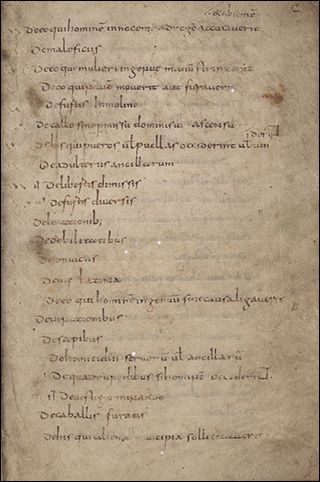 De eo qui hominē innocentē ad regē accusaverit
De maleficiis
De eo qui mulieri ingenue manū strinxerit
De eo qui navē moverit aut furaverit
De furtis in molino
De caballo sine permissu domini sui ascensu
De his qui pueros vł puellas occiderint vł
De adulteriis ancillarum
De libertis dimissis
De furtis diversis
De locationib;
De debilitatibus
De convicus
De via latina
De eo qui hominē ingenuū sine causa ligaverit
De venationibus
De sepibus
De homicidiis servorū vł ancillarū
De quadrupedibus si hominē occiderit
De vestigio minando
De caballis furatis
De his qui aliena mancipia sollicitaverit